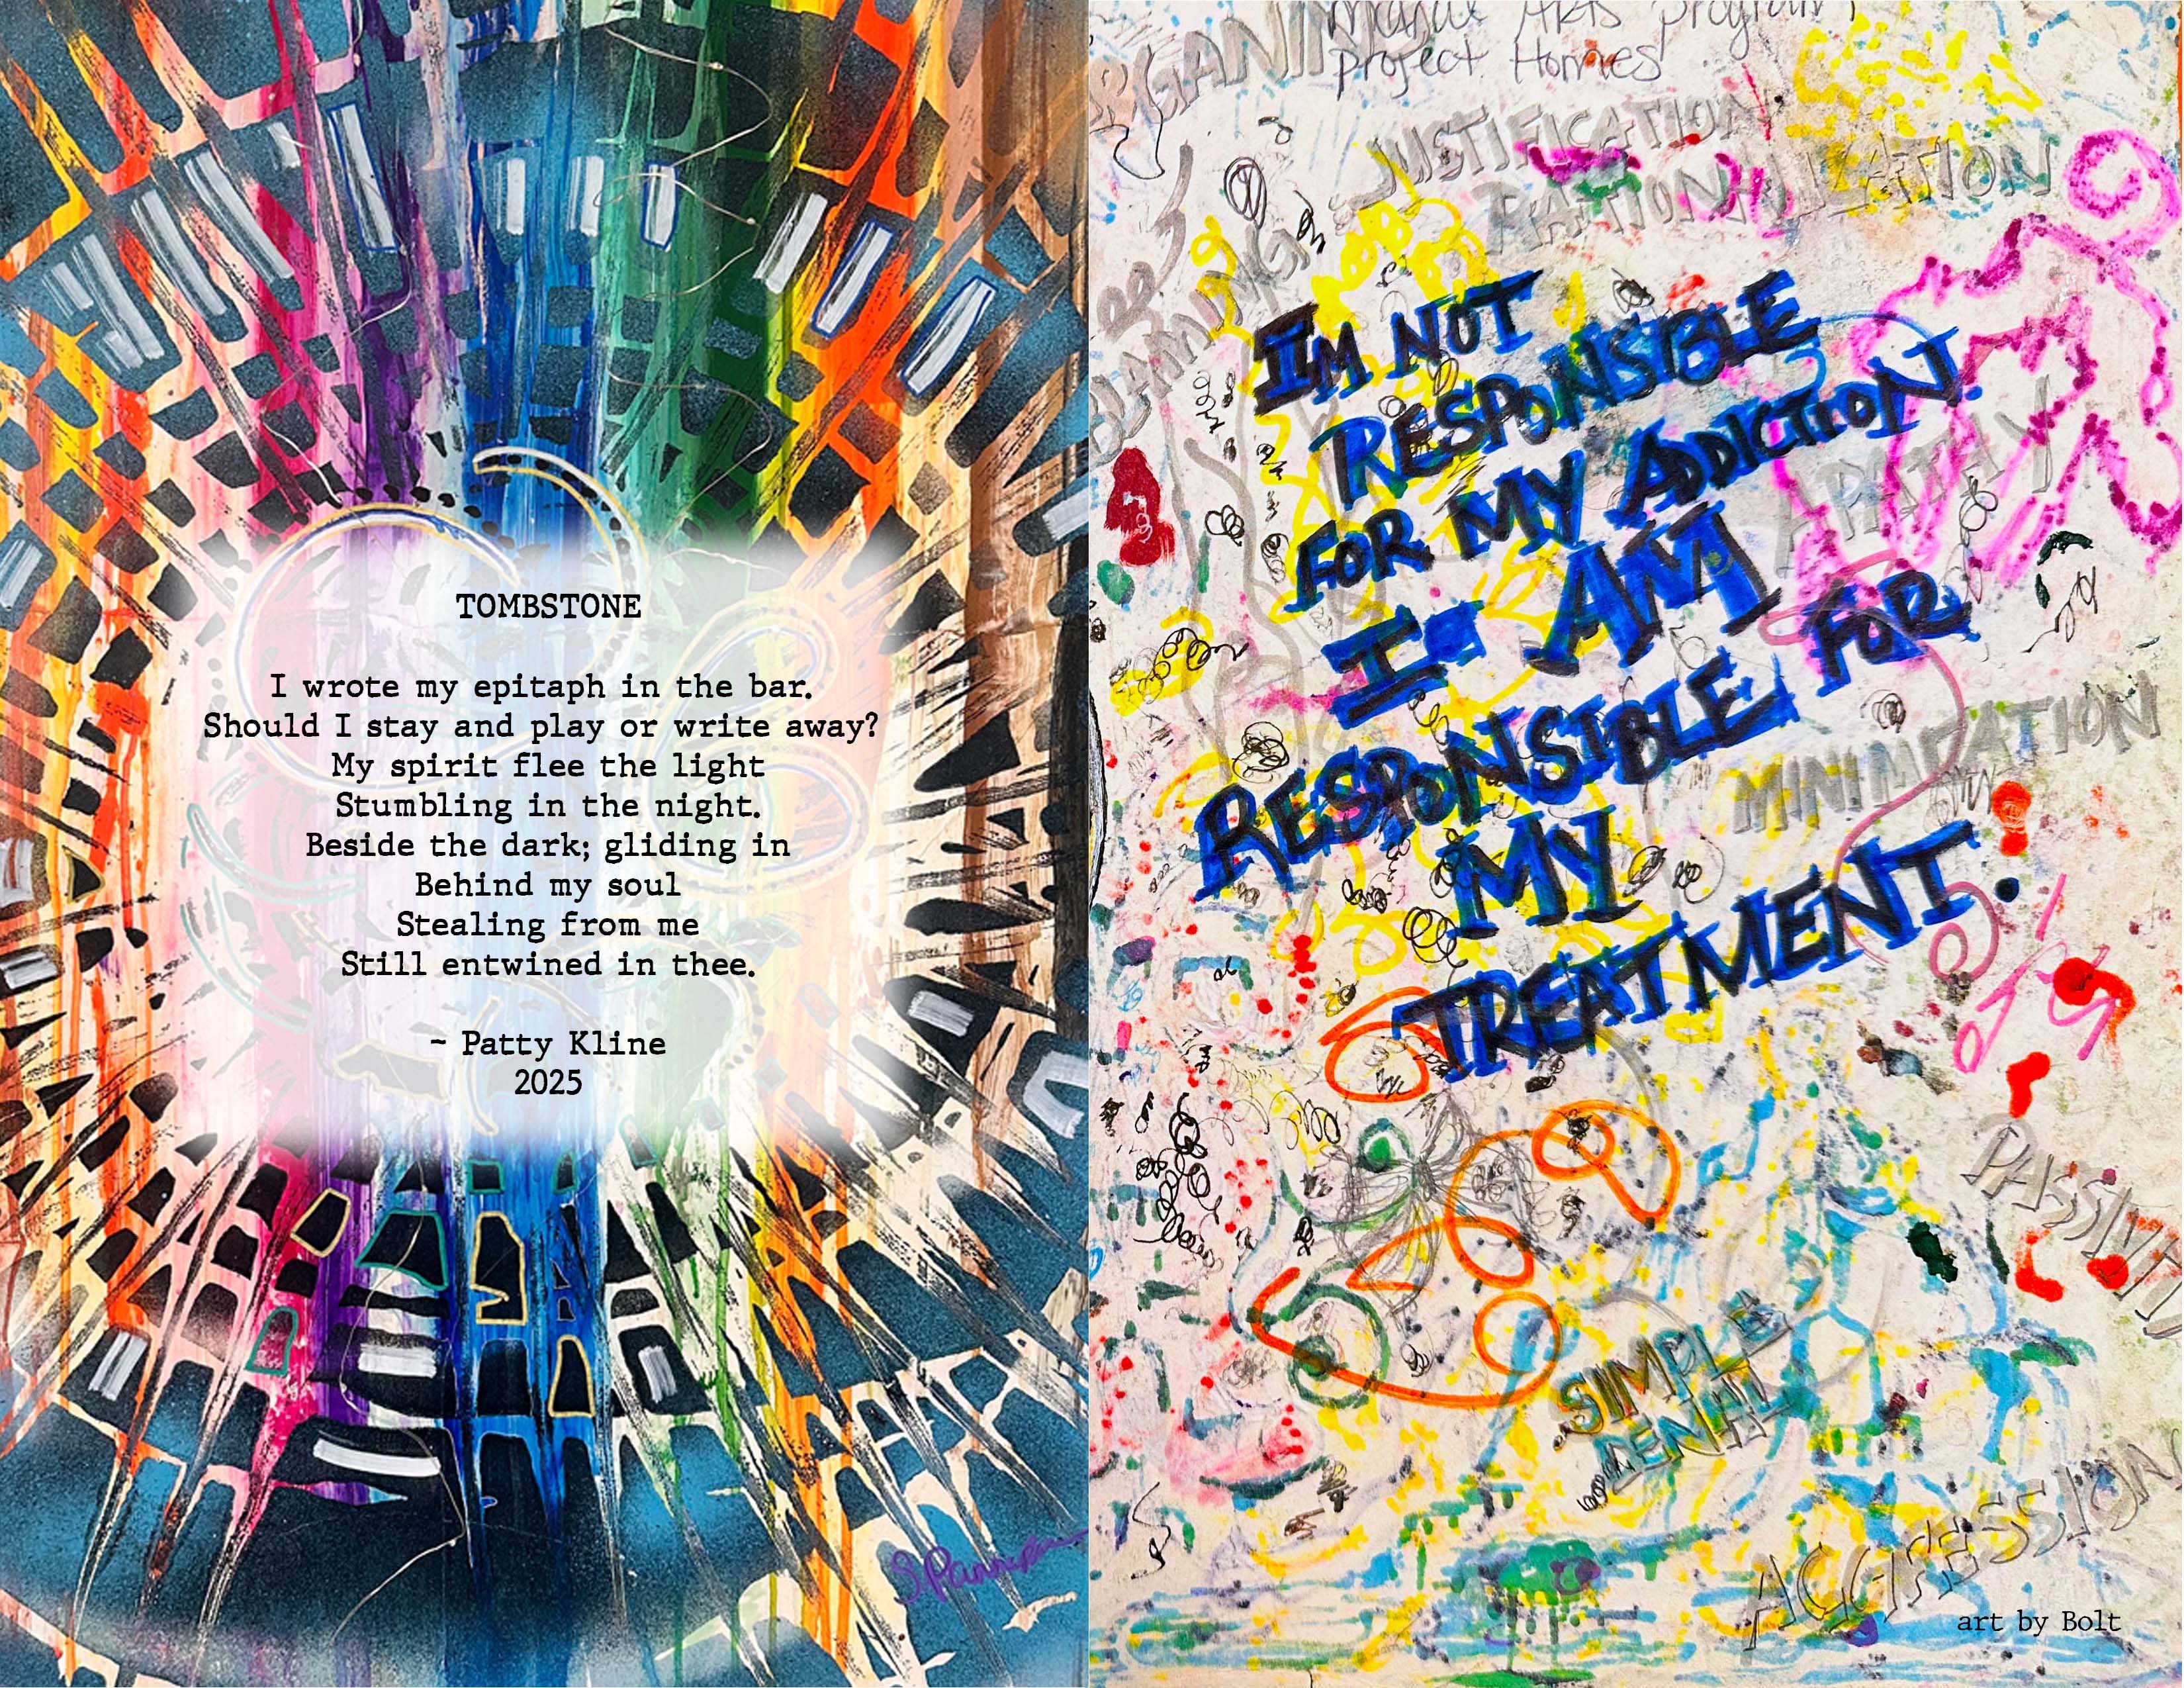 TOMBSTONE
I wrote my epitaph in the bar.
Should I stay and play or write away?
My spirit flee the light
Stumbling in the night.
Beside the dark; gliding in
Behind my soul
Stealing from me
Still entwined in thee.
~ Patty Kline
2025
Arts program
project Homes
JUSTIFICATION
RATIONALIZATION
BLAMING
IM NOT
RESPONSIBLE
FOR MY ADDICTION.
I AM
RESPONSIBLE FOR
MY
TREATMENT.
APATHY
MINIMIZATION
PASSIVITY
SIMPLE
DENIAL
AGGRESSION
art by Bolt